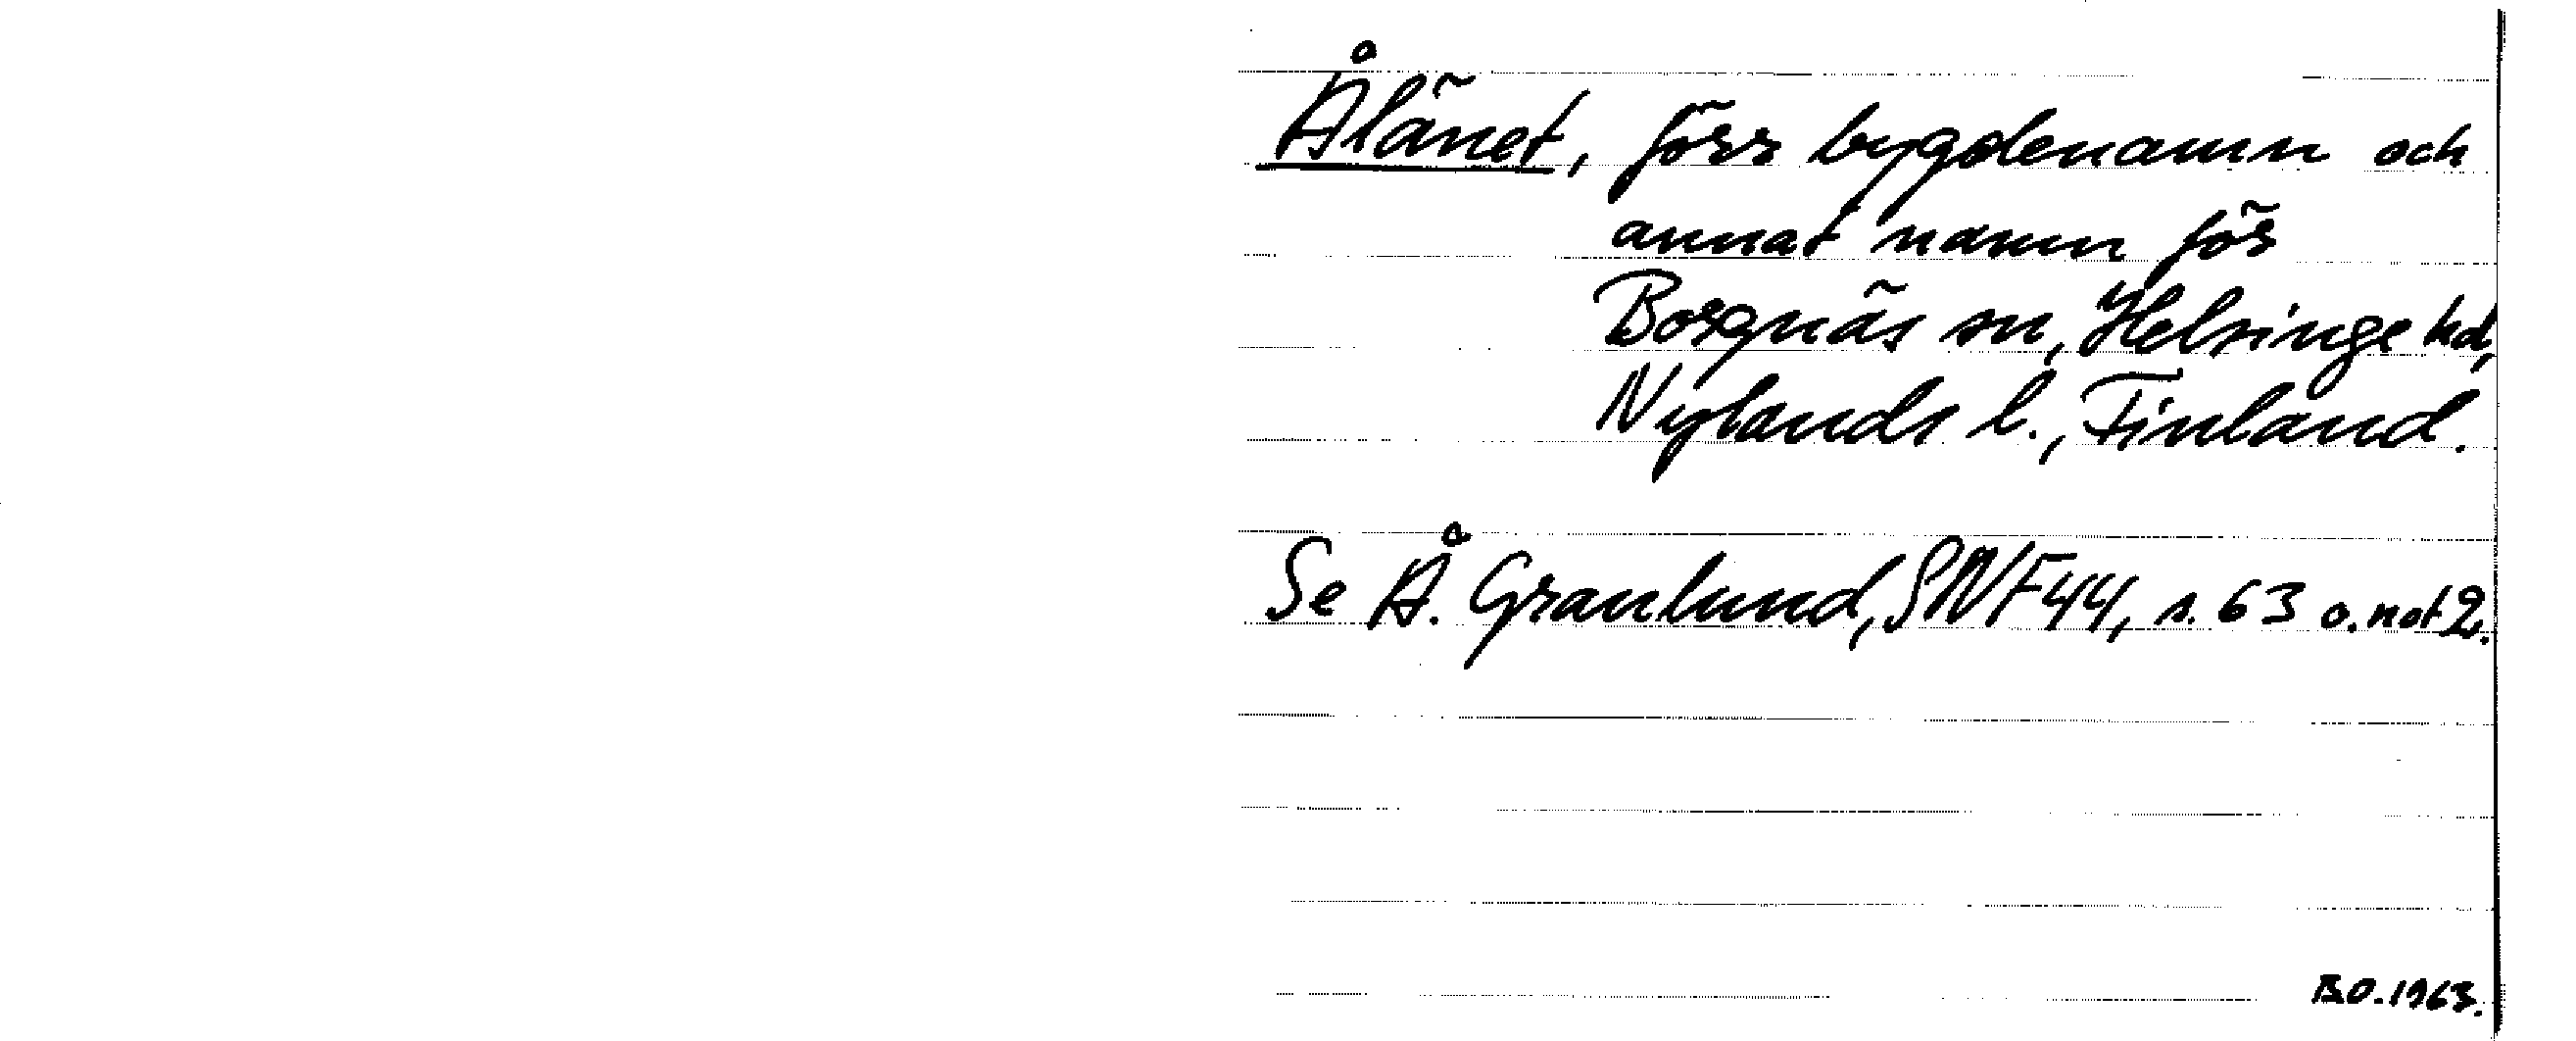 Ålänet, förr bygdenamn och
annat namn för
Borgnäs sn, Helsinge hd,
Nylands l., Finland.
Se Å. Granlund, SNF 44, s. 63 o. not 2.
B.O. 1963.